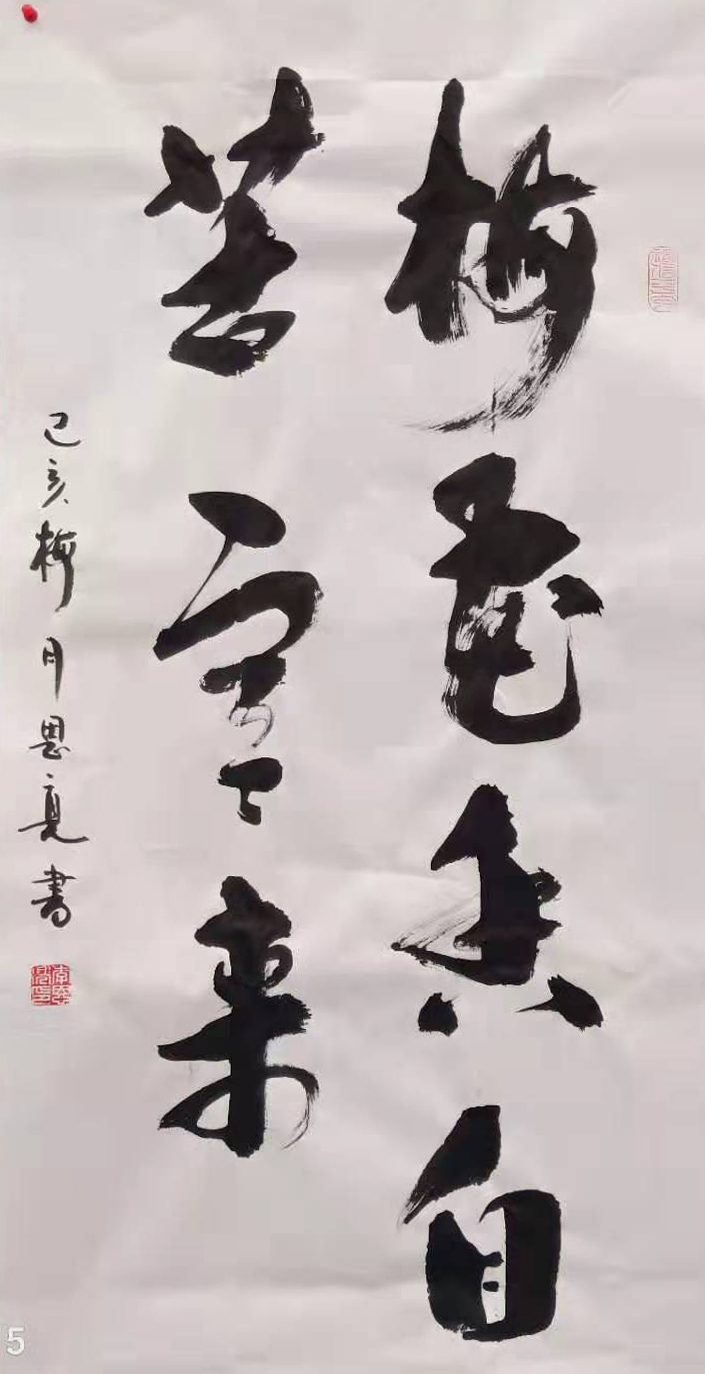 梅花香自
苦寒来
己亥梅月思亮书
5